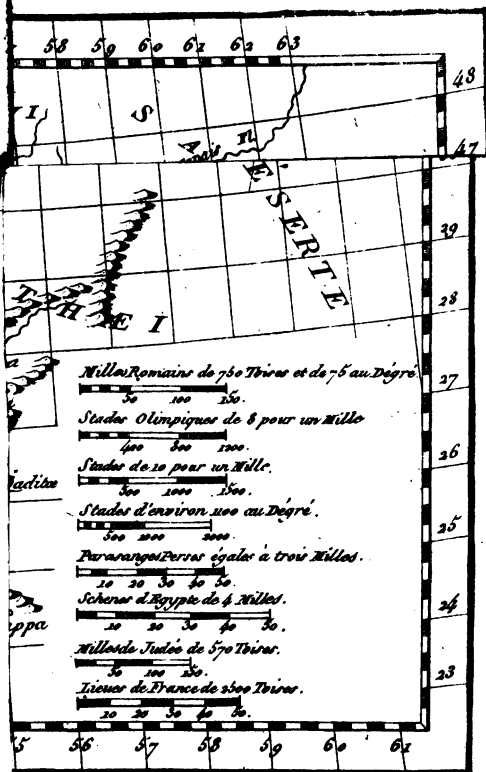 58 59 60 61 62 63
48
S
A
47
ÉSERTE
29
28
THEI
27
Milles Romains de 750 Toises et de 75 au Dégré
50 100 150.
Stades Olimpiques de 8 pour un Mille
400 800 1200.
26
Stades de 10 pour un Mille.
500 1000 1500.
Stades d'environ 1100 au Dégré.
500 1000 2000.
25
Parasanges Perses égales à trois Milles.
10 20 30 40 50.
Schenes d'Egypte de 4 Milles.
10 20 30 40 50.
24
Milles de Judée de 570 Toises.
50 100 150.
Lieues de France de 2500 Toises.
10 20 30 40 50.
23
55 56 57 58 59 60 61